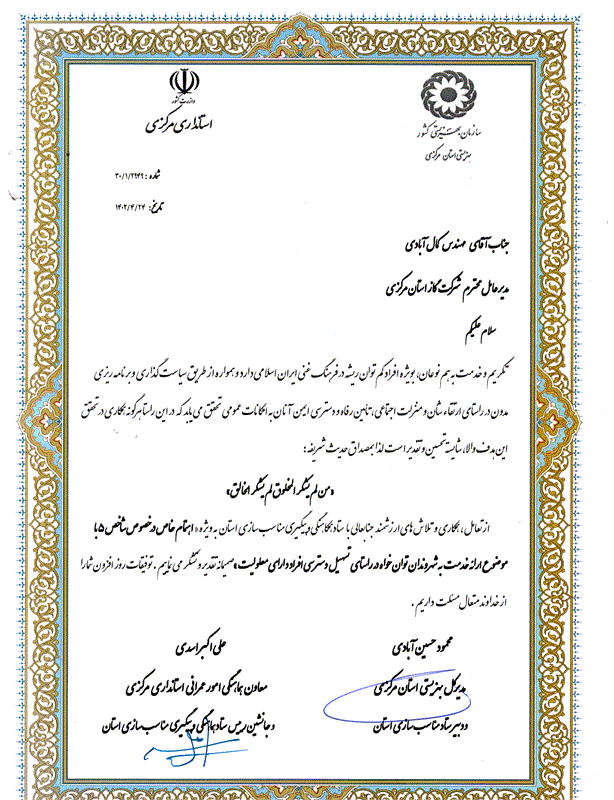 وزارت کشور
استانداری مرکزی
سازمان بهزیستی کشور
بهزیستی استان مرکزی
شماره : ۳۰/۱/۲۹۴۹
تاریخ: ۱۴۰۲/۴/۲۴
جناب آقای مهندس کمال آبادی
مدیرعامل محترم شرکت گاز استان مرکزی
سلام علیکم
تکریم و خدمت به هم نوعان، بویژه افراد کم توان ریشه در فرهنگ غنی ایران اسلامی دارد و همواره از طریق سیاست گذاری و برنامه ریزی
مدون در راستای ارتقاء شان و منزلت اجتماعی، تامین رفاه و دسترسی ایمن آنان به امکانات عمومی تحقق می یابد که در این راستا هرگونه همکاری در تحقق
این هدف والا، شایسته تحسین و تقدیر است لذا بمصداق حدیث شریفه :
«من لم یشکر المخلوق لم یشکر الخالق»
از تعامل، همکاری و تلاش های ارزشمند جنابعالی با ستاد هماهنگی و پیگیری مناسب سازی استان به ویژه « اهتمام خاص در خصوص شاخص ۵ با
موضوع ارائه خدمت به شهروندان توان خواه در راستای تسهیل دسترسی افراد دارای معلولیت » صمیمانه تقدیر و تشکر می نماییم . توفیقات روز افزون شما را
از خداوند متعال مسئلت داریم .
محمود حسین آبادی
مدیرکل بهزیستی استان مرکزی
و دبیر ستاد مناسب سازی استان
علی اکبر اسدی
معاون هماهنگی امور عمرانی استانداری مرکزی
و جانشین رییس ستاد هماهنگی و پیگیری مناسب سازی استان